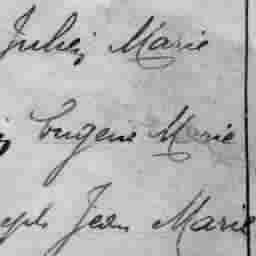 Julien Marie
Eugène Marie
Jean Marie